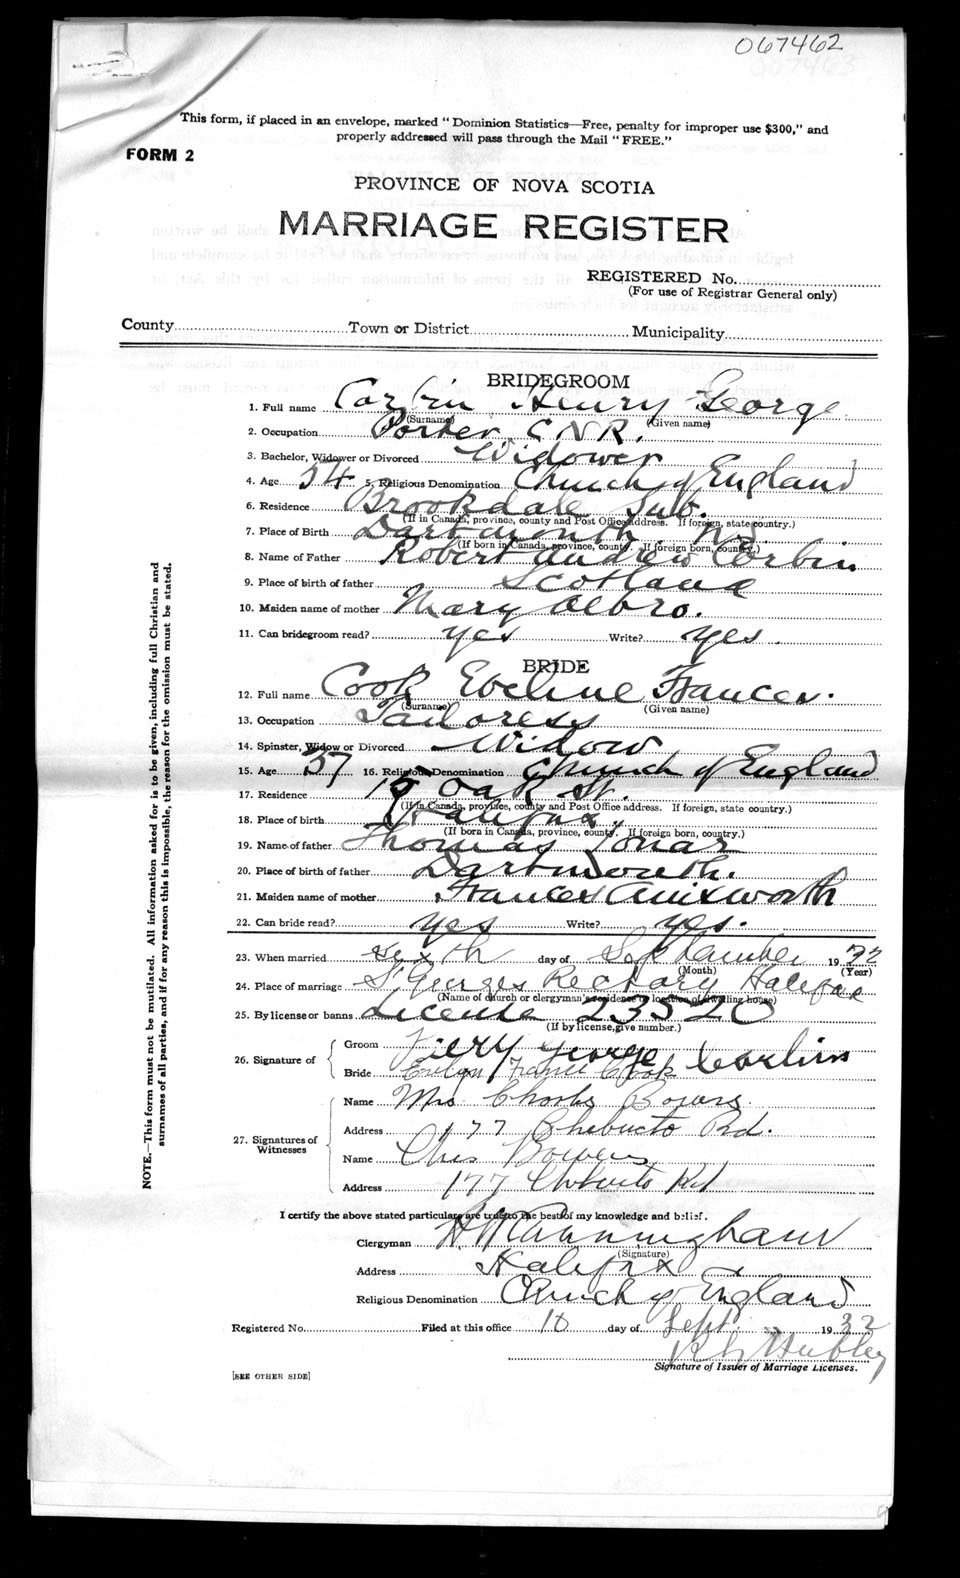 067462
This form, if placed in an envelope, marked "Dominion Statistics—Free, penalty for improper use $300," and
properly addressed will pass through the Mail "FREE."
FORM 2
PROVINCE OF NOVA SCOTIA
MARRIAGE REGISTER
REGISTERED No.
(For use of Registrar General only)
County Town or District Municipality
BRIDEGROOM
1. Full name Corbin Henry George
(Surname) (Given name)
2. Occupation Porter C.N.R.
3. Bachelor, Widower or Divorced Widower
4. Age 54 5. Religious Denomination Church of England
6. Residence Brookdale Sub.
(If in Canada, province, county and Post Office address. If foreign, state country.)
7. Place of Birth Dartmouth N.S.
(If born in Canada, province, county. If foreign born, country.)
8. Name of Father Robert Andrew Corbin
9. Place of birth of father Scotland
10. Maiden name of mother Mary Albro.
11. Can bridegroom read? yes Write? yes.
BRIDE
12. Full name Cook Eveline Frances.
(Surname) (Given name)
13. Occupation Tailoress
14. Spinster, Widow or Divorced Widow
15. Age 57 16. Religious Denomination Church of England
17. Residence 15 Oak St.
(If in Canada, province, county and Post Office address. If foreign, state country.)
18. Place of birth Halifax,
(If born in Canada, province, county. If foreign born, country.)
19. Name of father Thomas
20. Place of birth of father Dartmouth.
21. Maiden name of mother Frances
22. Can bride read? yes Write? yes.
23. When married sixth day of September 1932
(Month) (Year)
24. Place of marriage St Georges Rectory Halifax
(Name of church or clergyman's residence or location of dwelling house)
25. By license or banns License 23520
(If by license, give number.)
26. Signature of
Groom George Corbin
Bride Evelyn Cook
27. Signatures of Witnesses
Name Mrs Bowers
Address 177 Chebucto Rd.
Name Chas Bowers
Address 177 Chebucto Rd
I certify the above stated particulars are true to the best of my knowledge and belief.
Clergyman Cunningham
(Signature)
Address Halifax
Religious Denomination Church of England
Registered No. Filed at this office 10 day of Sept. 1932
Hubley
Signature of Issuer of Marriage Licenses.
[SEE OTHER SIDE]
NOTE.—This form must not be mutilated. All information asked for is to be given, including full Christian and
surnames of all parties, and if for any reason this is impossible, the reason for the omission must be stated.